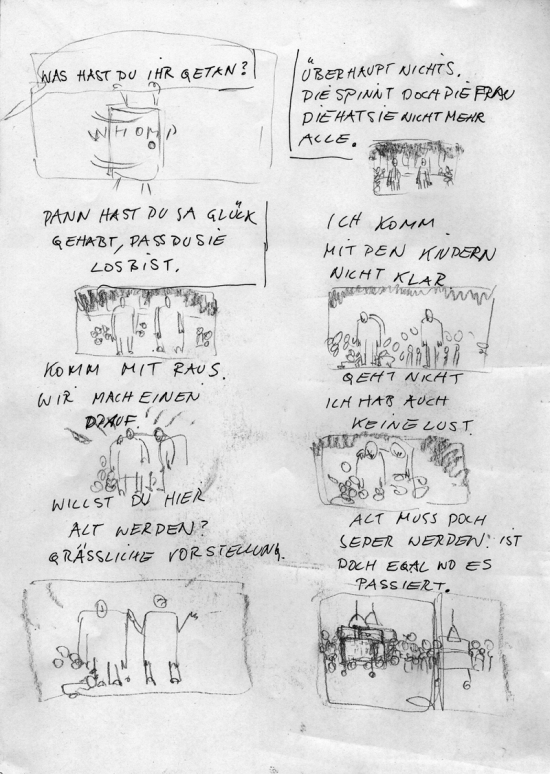 WAS HAST DU IHR GETAN?
WHOMP
ÜBERHAUPT NICHTS.
DIE SPINNT DOCH DIE FRAU
DIE HAT SIE NICHT MEHR
ALLE.
DANN HAST DU JA GLÜCK
GEHABT, DASS DU SIE
LOS BIST.
ICH KOMM
MIT DEN KINDERN
NICHT KLAR
KOMM MIT RAUS.
WIR MACH EINEN
DRAUF.
GEHT NICHT
ICH HAB AUCH
KEINE LUST.
WILLST DU HIER
ALT WERDEN?
GRÄSSLICHE VORSTELLUNG.
ALT MUSS DOCH
JEDER WERDEN. IST
DOCH EGAL WO ES
PASSIERT.